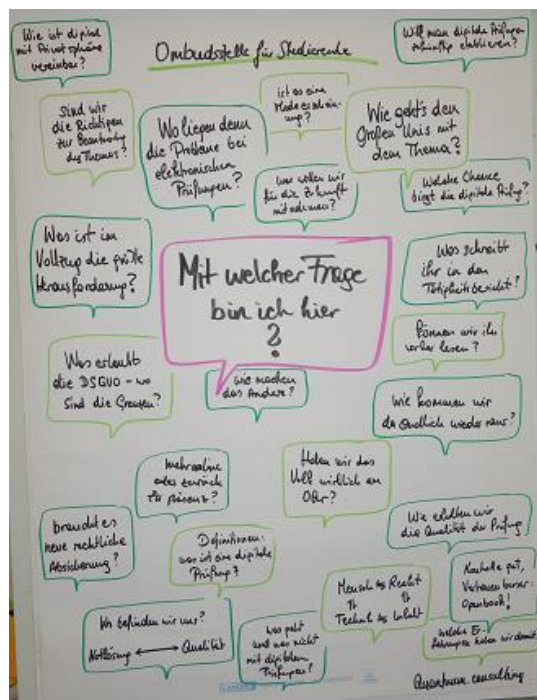 Wie ist digital
mit Privatsphäre
vereinbar?
Ombudsstelle für Studierende
Will man digitale Prüfungen
zukünftig etablieren?
Sind wir
die Richtigen
zur Beantwortung
des Themas?
Wo liegen denn
die Probleme bei
elektronischen
Prüfungen?
ist es eine
Modeerschein-
ung?
Wie geht's den
Großen Unis mit
dem Thema?
was wollen wir
für die Zukunft
mitnehmen?
Welche Chance
birgt die digitale Prüfg?
Was ist im
Vollzug die größte
Herausforderung?
Mit welcher Frage
bin ich hier
?
Was schreibt
ihr in den
Tätigkeitsbericht?
Können wir ihn
vorher lesen?
Was erlaubt
die DSGVO - wo
sind die Grenzen?
wie machen
das Andere?
Wie kommen wir
da rechtlich wieder raus?
mehr online
oder zurück
zu präsenz?
Holen wir das
voll wirklich am
braucht es
neue rechtliche
Absicherung?
Definitionen:
was ist eine digitale
Prüfung?
Wie erhalten wir
die Qualität der Prüfung
Wo befinden wir uns?
Notlösung ⟷ Qualität
was geht
und was nicht
mit digitalen
Prüfungen?
Mensch ⇆ Recht
⇅ ⇅
Technik ⇆ Inhalt
Kontrolle gut,
Vertrauen besser:
Openbook!
welche Er-
fahrungen haben wir damit
consulting